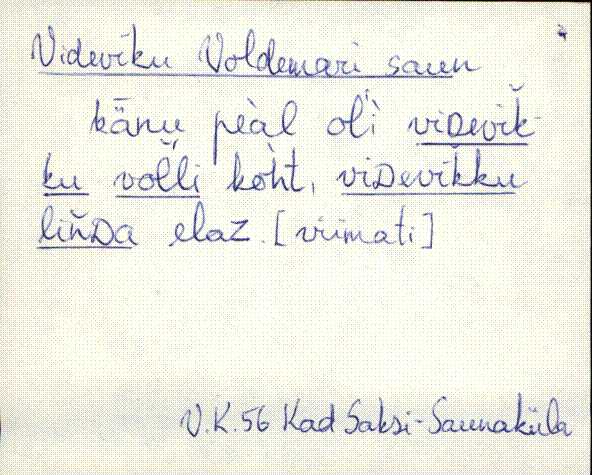 Videviku Voldemari saun
kǟnu pèàl oľì viDevik̆-
ku voľ̆li kòht, viDevik̆ku
liňDa elaz. [viimati]
V.K. 56 Kad Saksi-Saunaküla